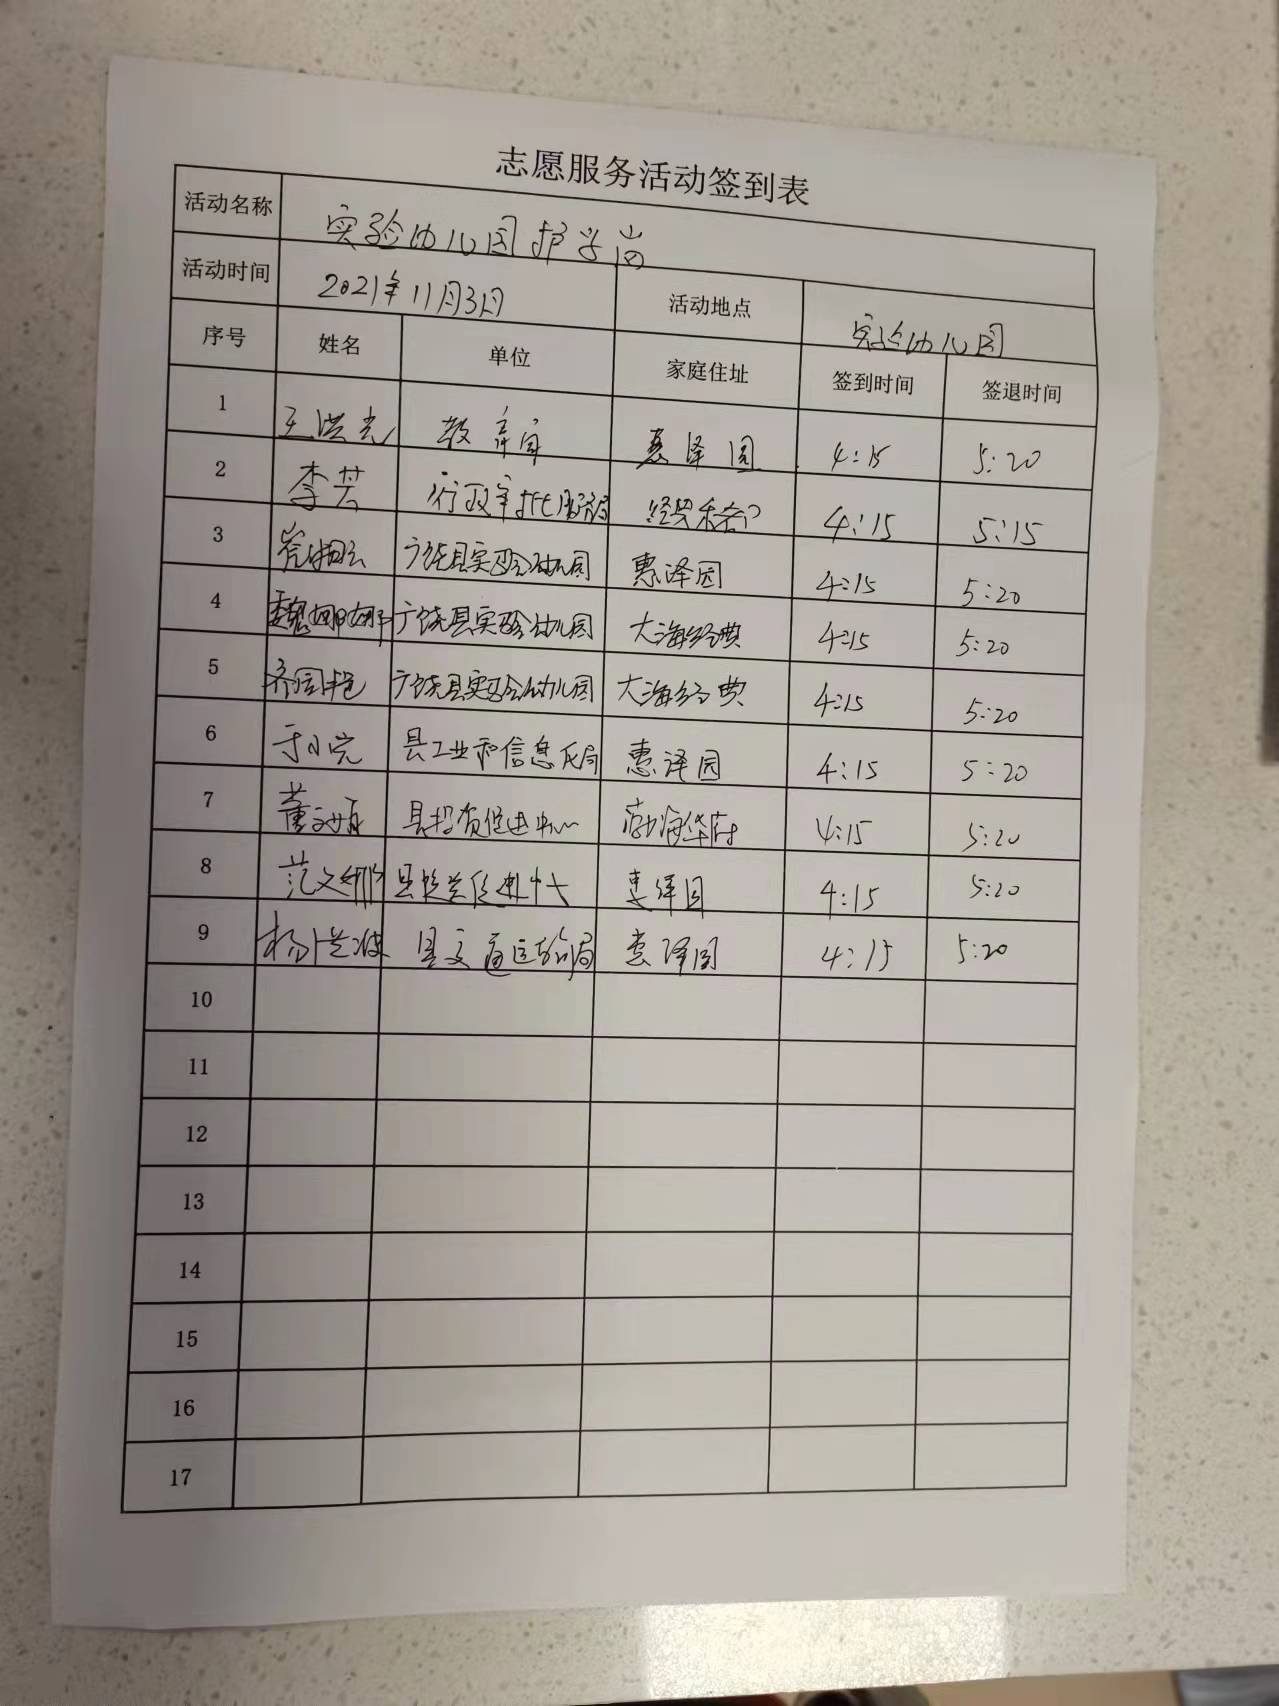 志愿服务活动签到表
活动名称 实验幼儿园护学岗
活动时间 2021年11月3日 活动地点 实验幼儿园
序号 姓名 单位 家庭住址 签到时间 签退时间
1 王洪光 教育局 惠泽园 4:15 5:20
2 李芸 行政审批服务局 4:15 5:15
3 广饶县实验幼儿园 惠泽园 4:15 5:20
4 魏娜娜 广饶县实验幼儿园 大海经典 4:15 5:20
5 广饶县实验幼儿园 大海经典 4:15 5:20
6 于小完 县工业和信息化局 惠泽园 4:15 5:20
7 董 县投资促进中心 渤海华府 4:15 5:20
8 范文娜 县投资促进中心 惠泽园 4:15 5:20
9 杨 波 县交通运输局 惠泽园 4:15 5:20
10
11
12
13
14
15
16
17